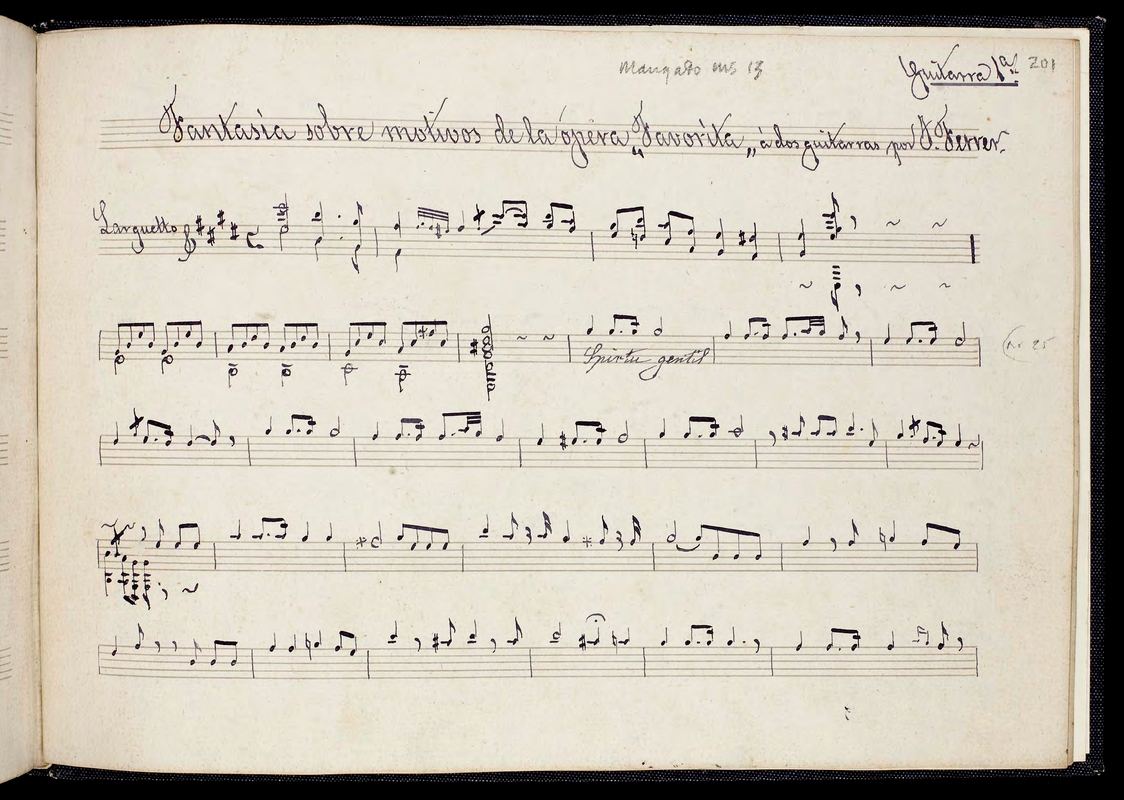 Mangado ms 13
Guitarra 1ª 201
Fantasía sobre motivos de la ópera „Favorita„ á dos guitarras por J. Ferrer.
Larguetto
Spirtu gentil